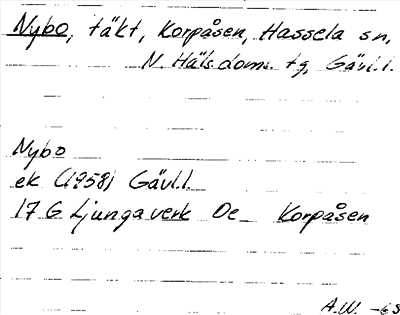 Nybo, täkt, Korpåsen, Hassela sn,
N. Häls. doms. tg, Gävl.l.
Nybo
ek (1958) Gävl.l.
17 G Ljungaverk De_ Korpåsen
A.W. -63